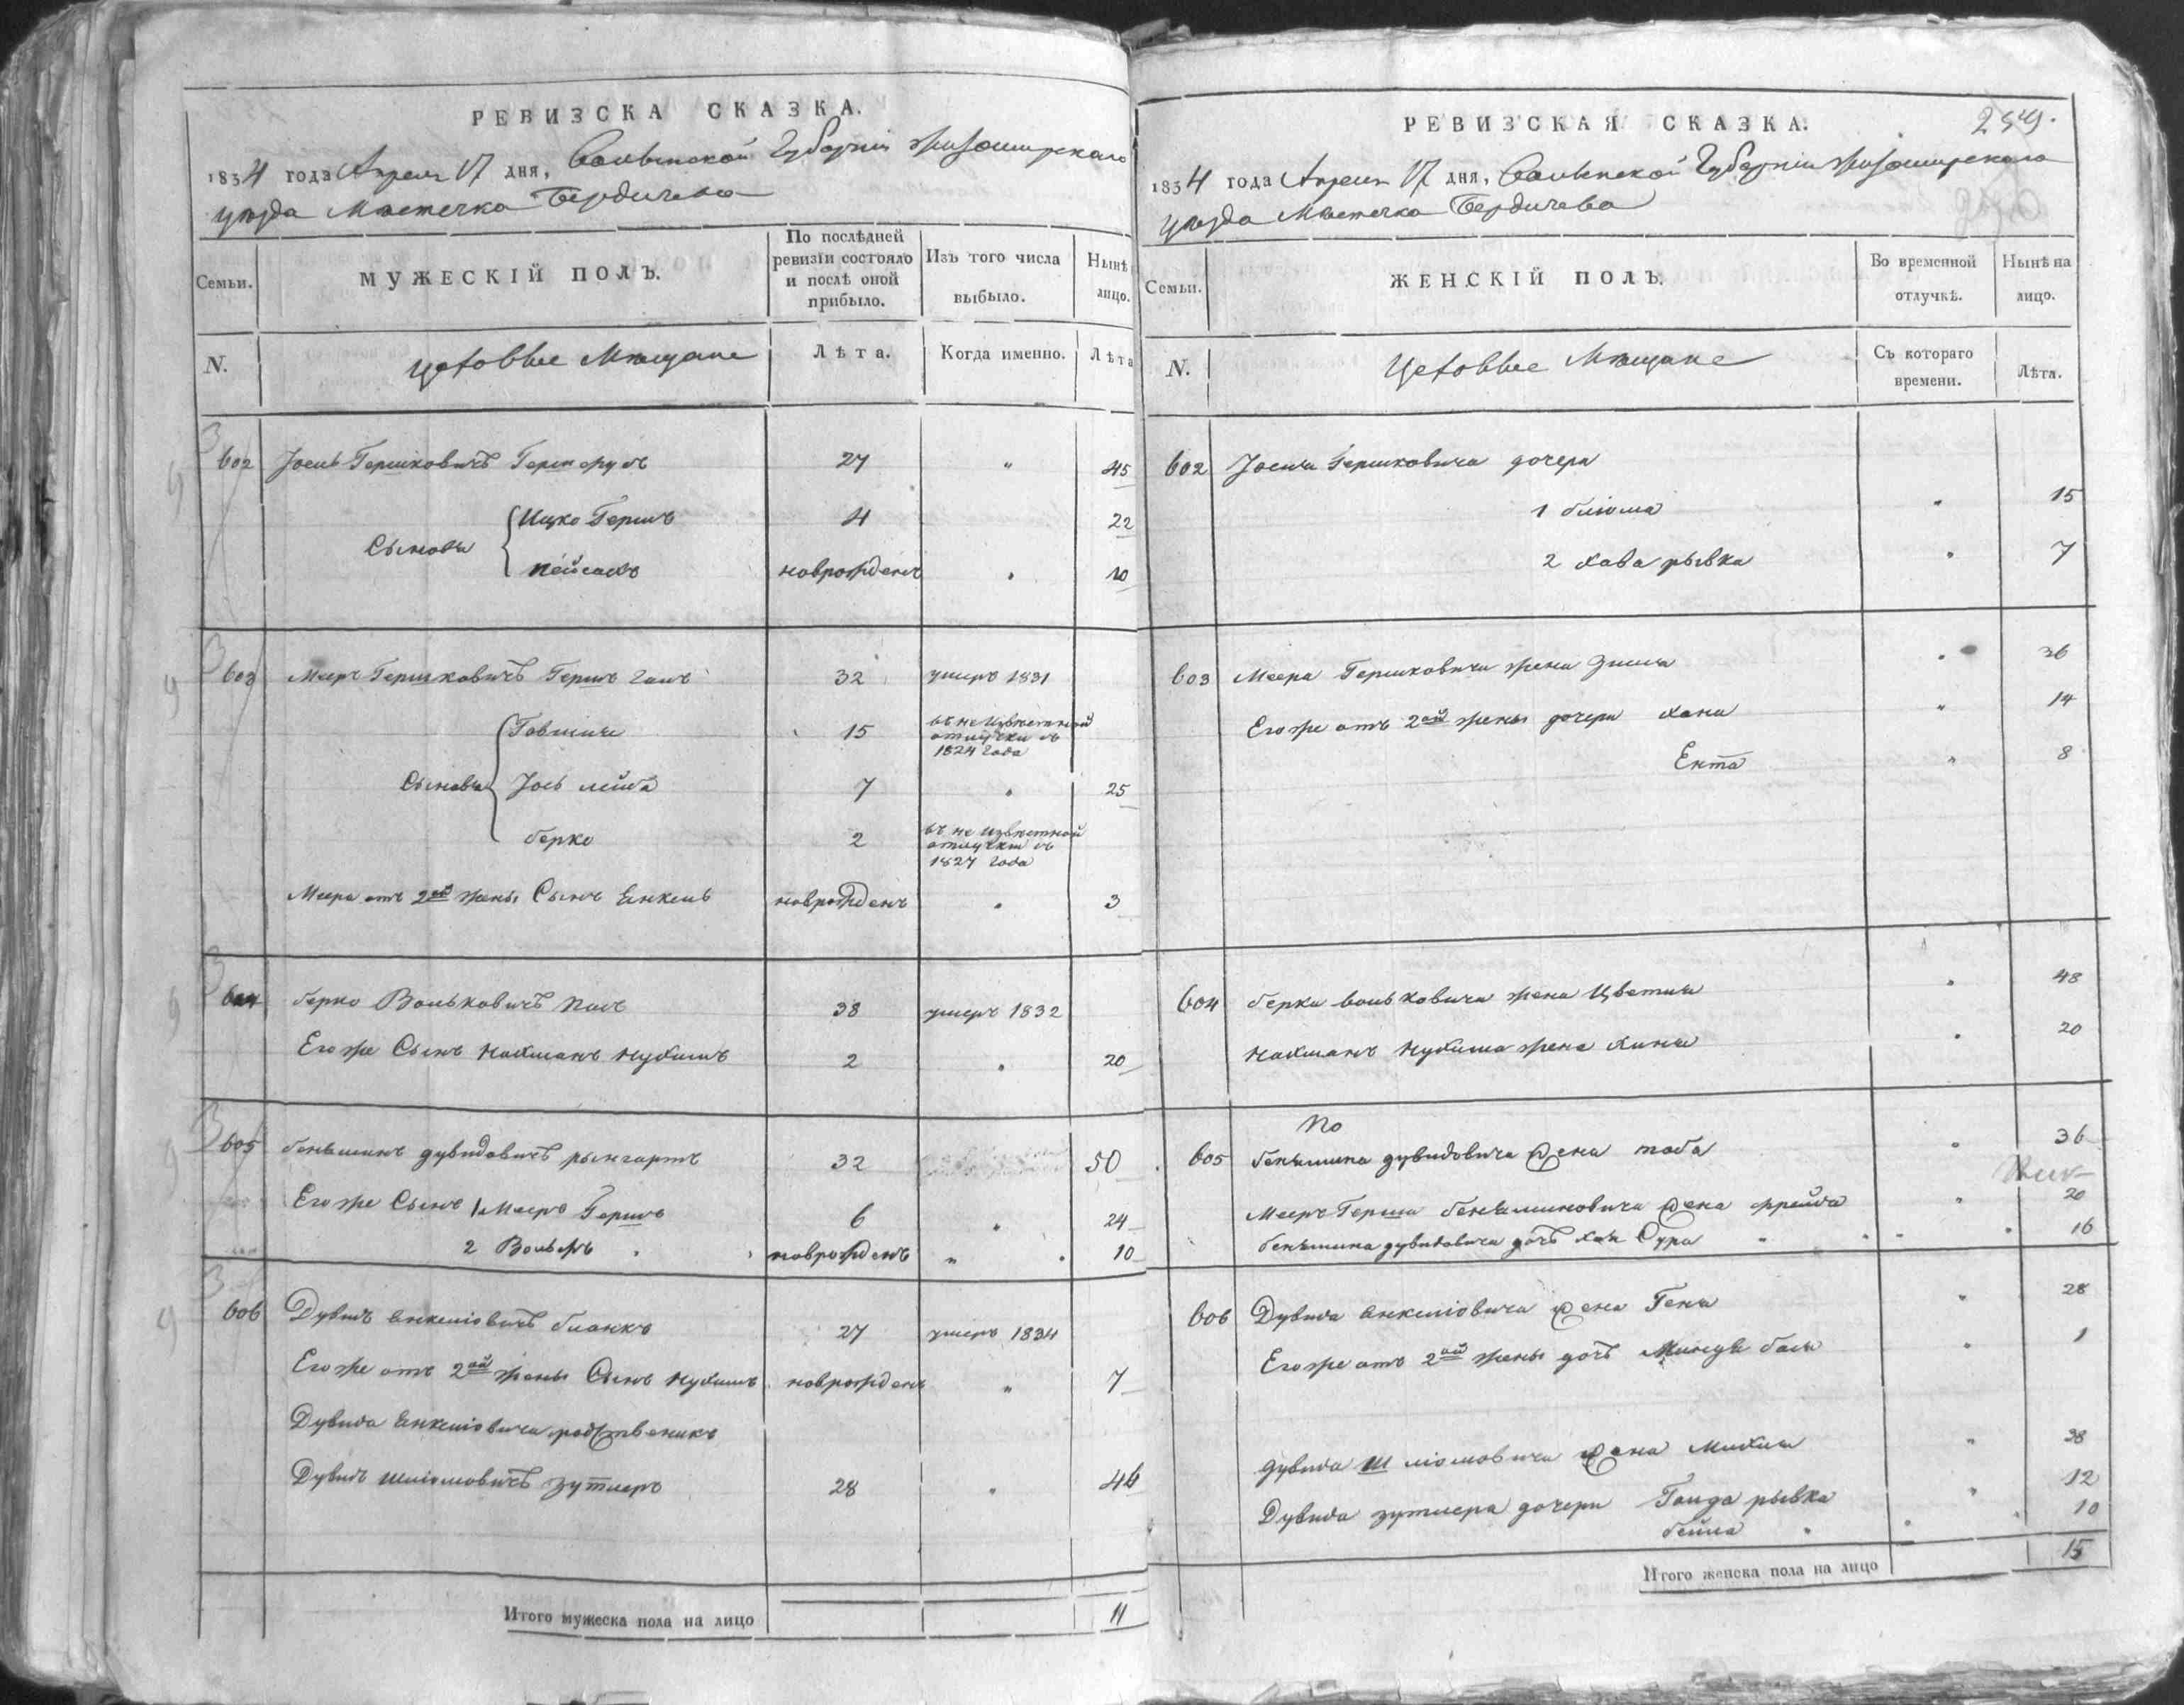 РЕВИЗСКА СКАЗКА.
1834 года Апреля 17 дня, Волынской Губерніи Житомирскаго
уезда Местечка Бердичева
Семьи.
МУЖЕСКІЙ ПОЛЪ.
По послѣдней ревизіи состояло и послѣ оной прибыло.
Изъ того числа выбыло.
Нынѣ лицо.
N.
Цеховые Мещане
Лѣта.
Когда именно.
Лѣта
602 Іосиь Гершковичъ 27 " 45
Сыновья Ицко Гершъ 4 22
Пейсахъ новрожденъ " 10
603 Мееръ Гершковичъ Гершъ 32 умеръ 1831
15 въ неизвестной отлучки съ 1824 года
Сыновья Іось лейба 7 " 25
берко 2 въ неизвестной отлучки съ 1827 года
Меера отъ 2ой жены Сынъ Енкель новрожденъ " 3
604 берко Вольковичъ 38 умеръ 1832
Его же Сынъ Нахманъ Нухимъ 2 " 20
605 беньминъ дувидовичъ рынгартъ 32 50
Его же Сынъ 1 Мееръ Гершъ 6 " 24
2 Вольфъ новрожденъ " 10
606 Дувидъ Янкеліовичъ бланкъ 27 умеръ 1834
Его же отъ 2ой жены Сынъ Нухимъ новрожденъ " 7
Дувида Янкеліовича родственикъ
Дувидъ Шліомовичъ зутлеръ 28 " 46
Итого мужеска пола на лицо 11
РЕВИЗСКАЯ СКАЗКА.
1834 года Апреля 17 дня, Волынской Губерніи Житомирскаго
уезда Местечка Бердичева
Семьи.
ЖЕНСКІЙ ПОЛЪ.
Во временной отлучкѣ.
Нынѣ на лицо.
N.
Цеховые Мещане
Съ котораго времени.
Лѣта.
602 Гершковича дочери
1 бліома " 15
2 Хава рывка " 7
603 Меера Гершковича жена Зисля " 36
Его же отъ 2ой жены дочери Хана " 14
Ента " 8
604 берка Вольковича жена Цветля " 48
Нахманъ Нухима жена Хина " 20
605 беньмина дувидовича жена тоба " 36
Мееръ Герша беньминовича жена фрейда " 20
беньмина дувидовича дочь Хая Сура " 16
606 Дувида Янкеліовича жена Геня " 28
Его же отъ 2ой жены дочь " 1
Дувида Шліомовича жена Михля " 28
Дувида зутлера дочери рывка " 12
бейла " 10
Итого женска пола на лицо 15